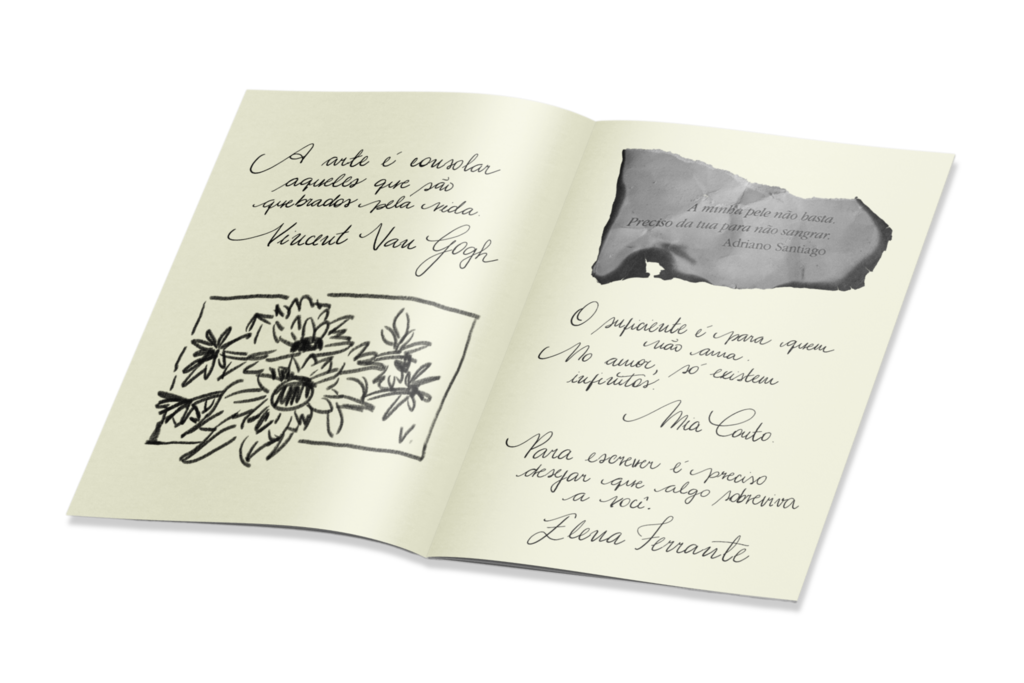 A arte é consolar
aqueles que são
quebrados pela vida.
Vincent Van Gogh
V.
A minha pele não basta.
Preciso da tua para não sangrar.
Adriano Santiago
O suficiente é para quem
não ama.
No amor, só existem
infinitos.
Mia Couto.
Para escrever é preciso
desejar que algo sobreviva
a você.
Elena Ferrante